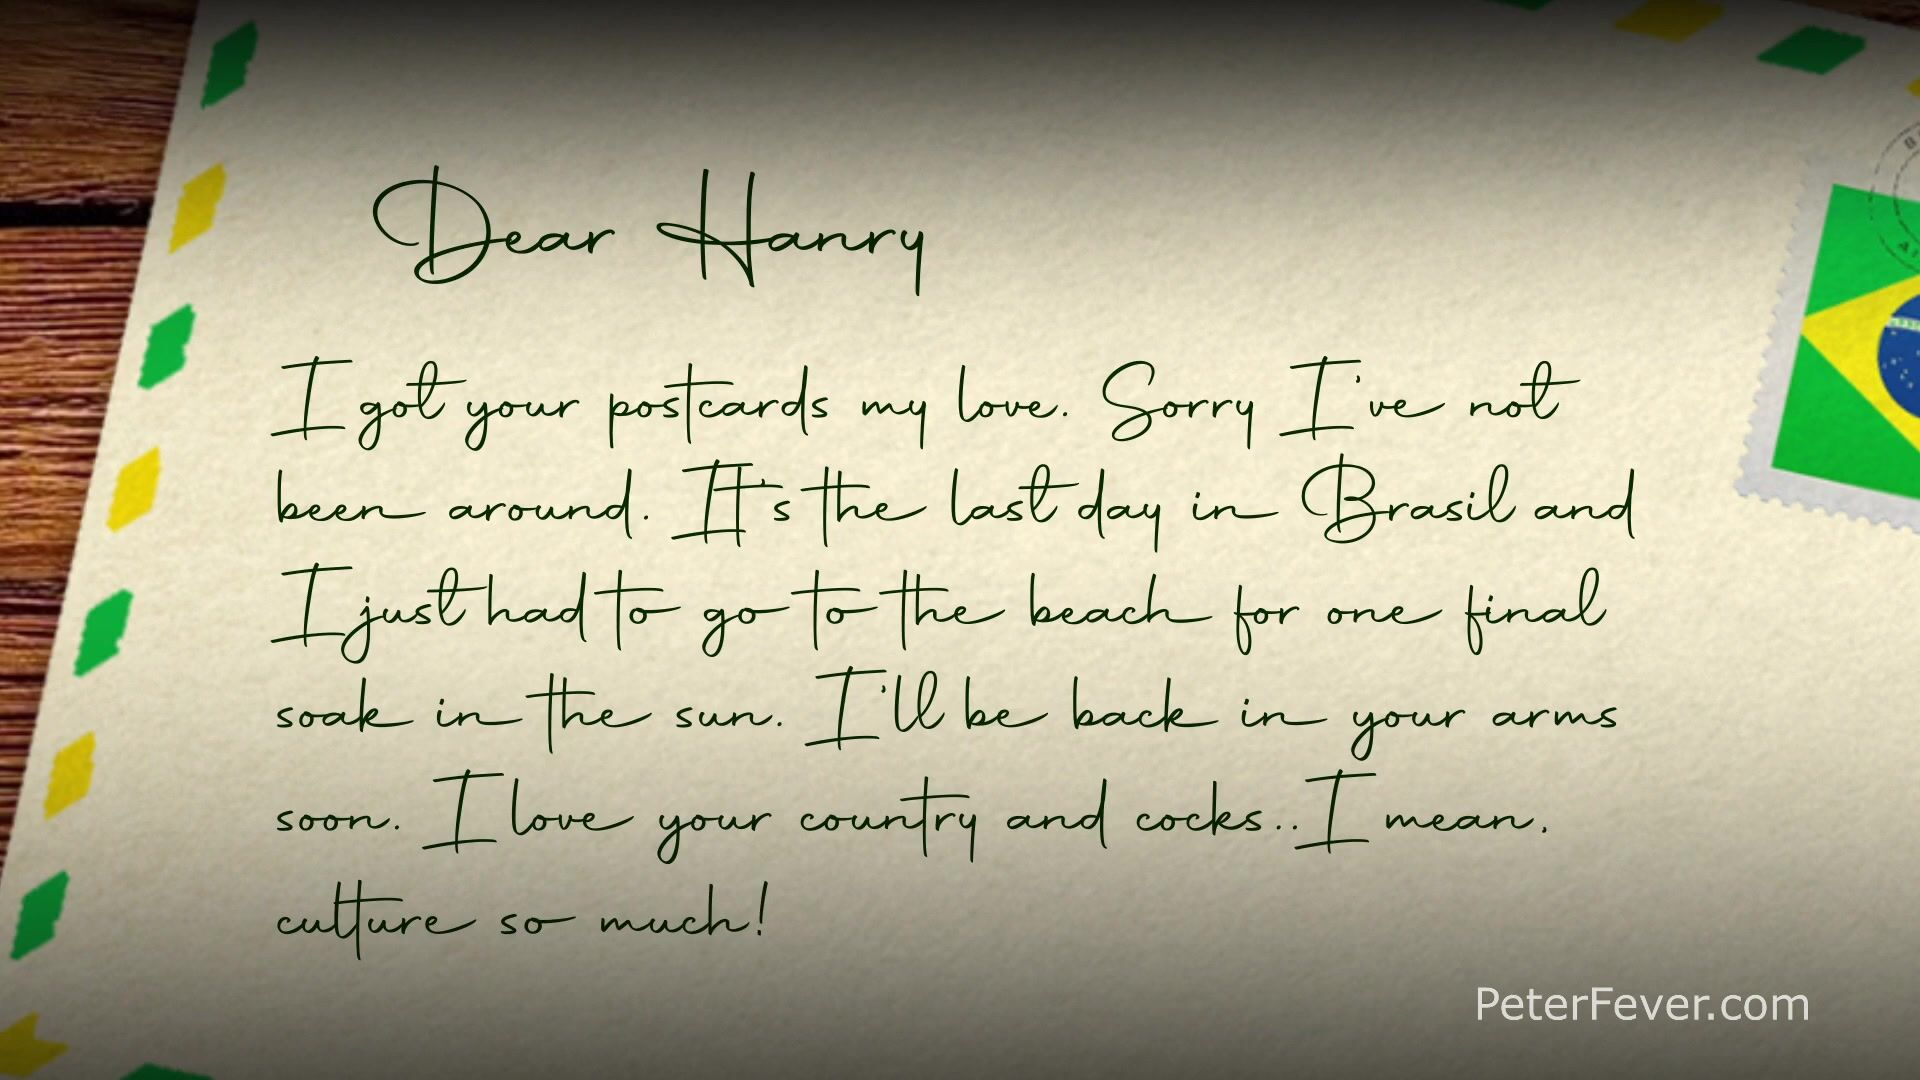 Dear Hanry
I got your postcards my love. Sorry I've not
been around. It's the last day in Brasil and
I just had to go to the beach for one final
soak in the sun. I'll be back in your arms
soon. I love your country and cocks..I mean.
culture so much!
PeterFever.com